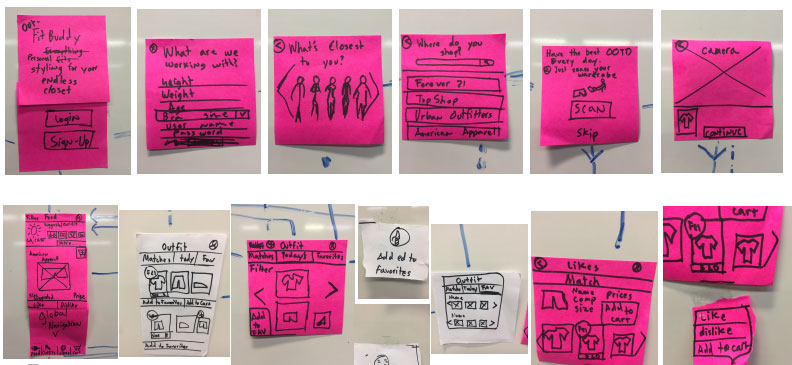 Fit Buddy
Personal
styling for your
endless
closet
Login
Sign-Up
What are we
working with?
height
Weight
Age
Bra size
User name
Password
What's Closest
to you?
Where do you
shop?
Forever 21
Top Shop
Urban Outfitters
American Apparel
Have the best OOTD
Every day.
Just scan your
wardrobe
SCAN
Skip
Camera
CONTINUE
Filter Feed
American
Apparel
Price
Like Dislike
Global
Navigation
Outfit
Matches Today Fav
Fri
Add to Favorites Add to Cart
Add to Favorites
Outfit
Matches Today's Favorites
Filter
Add
to
FAV
Added to
Favorites
Outfit
Today FAV
Name
Name
Likes
Match
Name
Comp
Size
Prices
Add to
cart
Fri
cart
Fri
Like
dislike
Add to cart